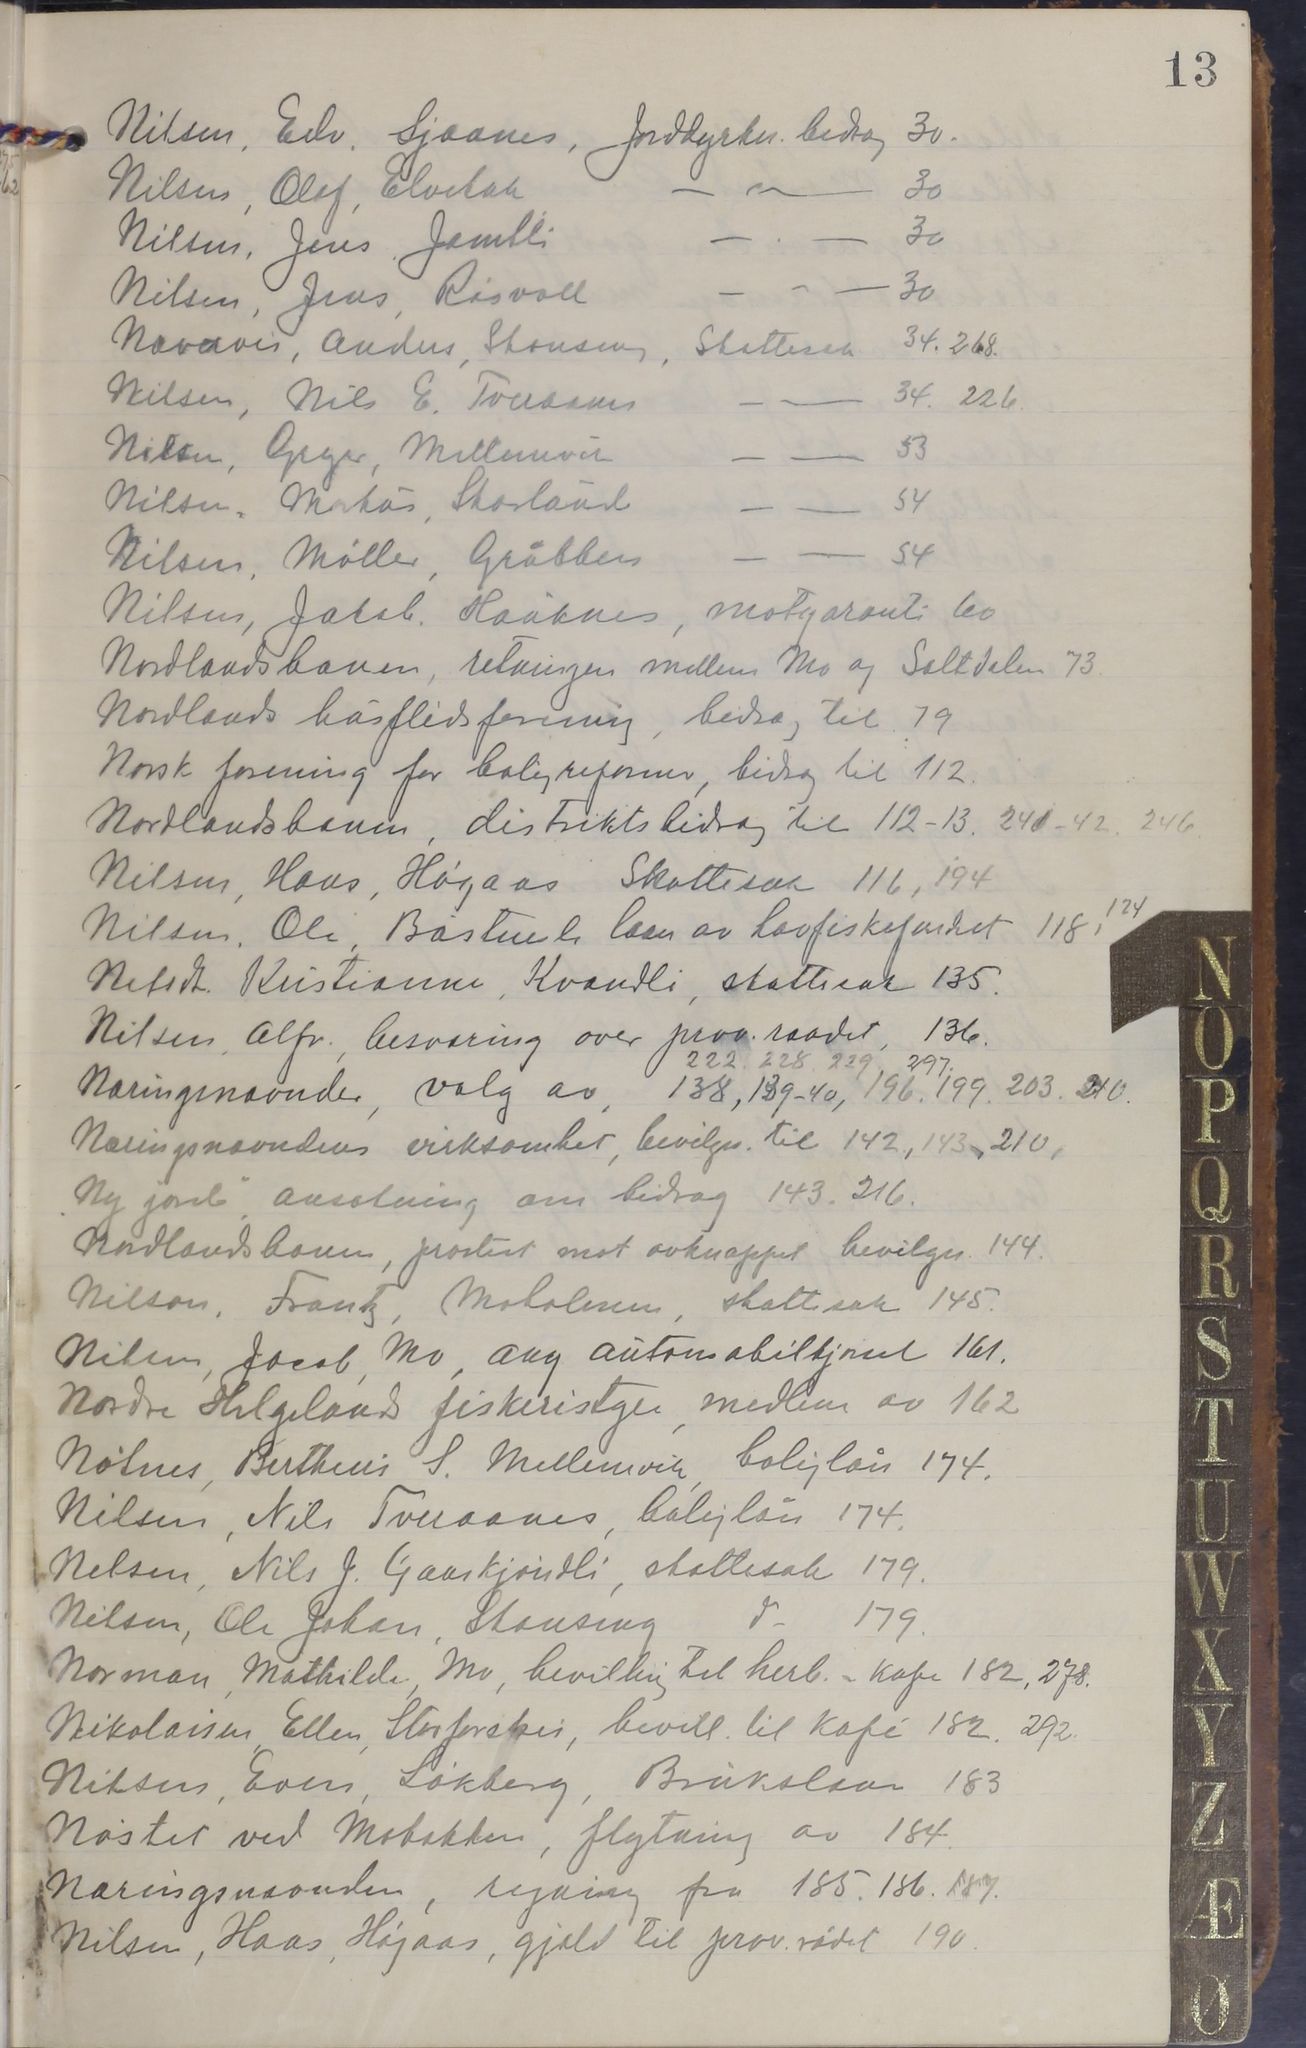 13
Nilsen, Edv. Sjaanes, Jorddyrkn. bidrag 30.
Nilsen, Olaf, Elvebak — " — 30
Nilsen, Jens Jamtli — " — 30
Nilsen, Jens, Røsvoll — " — 30
Nævernes, Anders, Stonseng, Skattesak 34. 268.
Nilsen, Nils E. Tveraanes — — 34. 226.
Nilsen, Gryer, Mellemvik — — 53
Nilsen, Markus, Skarland — — 54
Nilsen, Møller, Grubben — — 54
Nilsen, Jakob. Haaknes, motgaranti 60
Nordlandsbanen, retningen mellem Mo og Saltdalen 73.
Nordlands husflidsforening, bidrag til 79
Norsk forening for boligreformer, bidrag til 112.
Nordlandsbanen, distriktsbidrag til 112-13. 240-42. 246.
Nilsen, Hans, Høgaas Skattesak 116, 194
Nilsen, Ole, Båstuneli laan av havfiskefondet 118, 124
Nilsdt. Kristianne, Kvandli, skattesak 135.
Nilsen, Alfr., besværing over prov.raadet, 136.
222. 228. 229, 297.
Næringsnævnder, valg av, 138, 139-40, 196. 199. 203. 210.
Næringsnævndens virksomhet, bevilgn. til 142, 143, 210,
"Ny jord" ansøkning om bidrag 143. 216.
Nordlandsbanen, protest mot avknappet bevilgn. 144.
Nilson, Frantz, Moholmen, skattesak 145.
Nilsen, Jacob, Mo, ang automobilkjørsel 161.
Nordre Helgelands fiskeristyre, medlem av 162
Nøtnes, Bertheus S. Mellemvik, boliglån 174.
Nilsen, Nils Tveraanes, boliglån 174.
Nilsen, Nils J. Gaaskjøndli, skattesak 179.
Nilsen, Ole Johan, Stonseng d- 179.
Norman, Mathilde, Mo, bevilling til herb. - kafe 182, 278.
Nikolaisen, Ellen, Storforshei, bevill. til Kafé 182. 292.
Nilsen, Even, Løkberg, Brukslaan 183
Nøstet ved Mobakken, flytning av 184.
Næringsnævnden, regning fra 185. 186. 187.
Nilsen, Hans, Høgaas, gjæld til prov.rådet 190.
N
O
P
Q
R
S
T
U
W
X
Y
Z
Æ
Ø